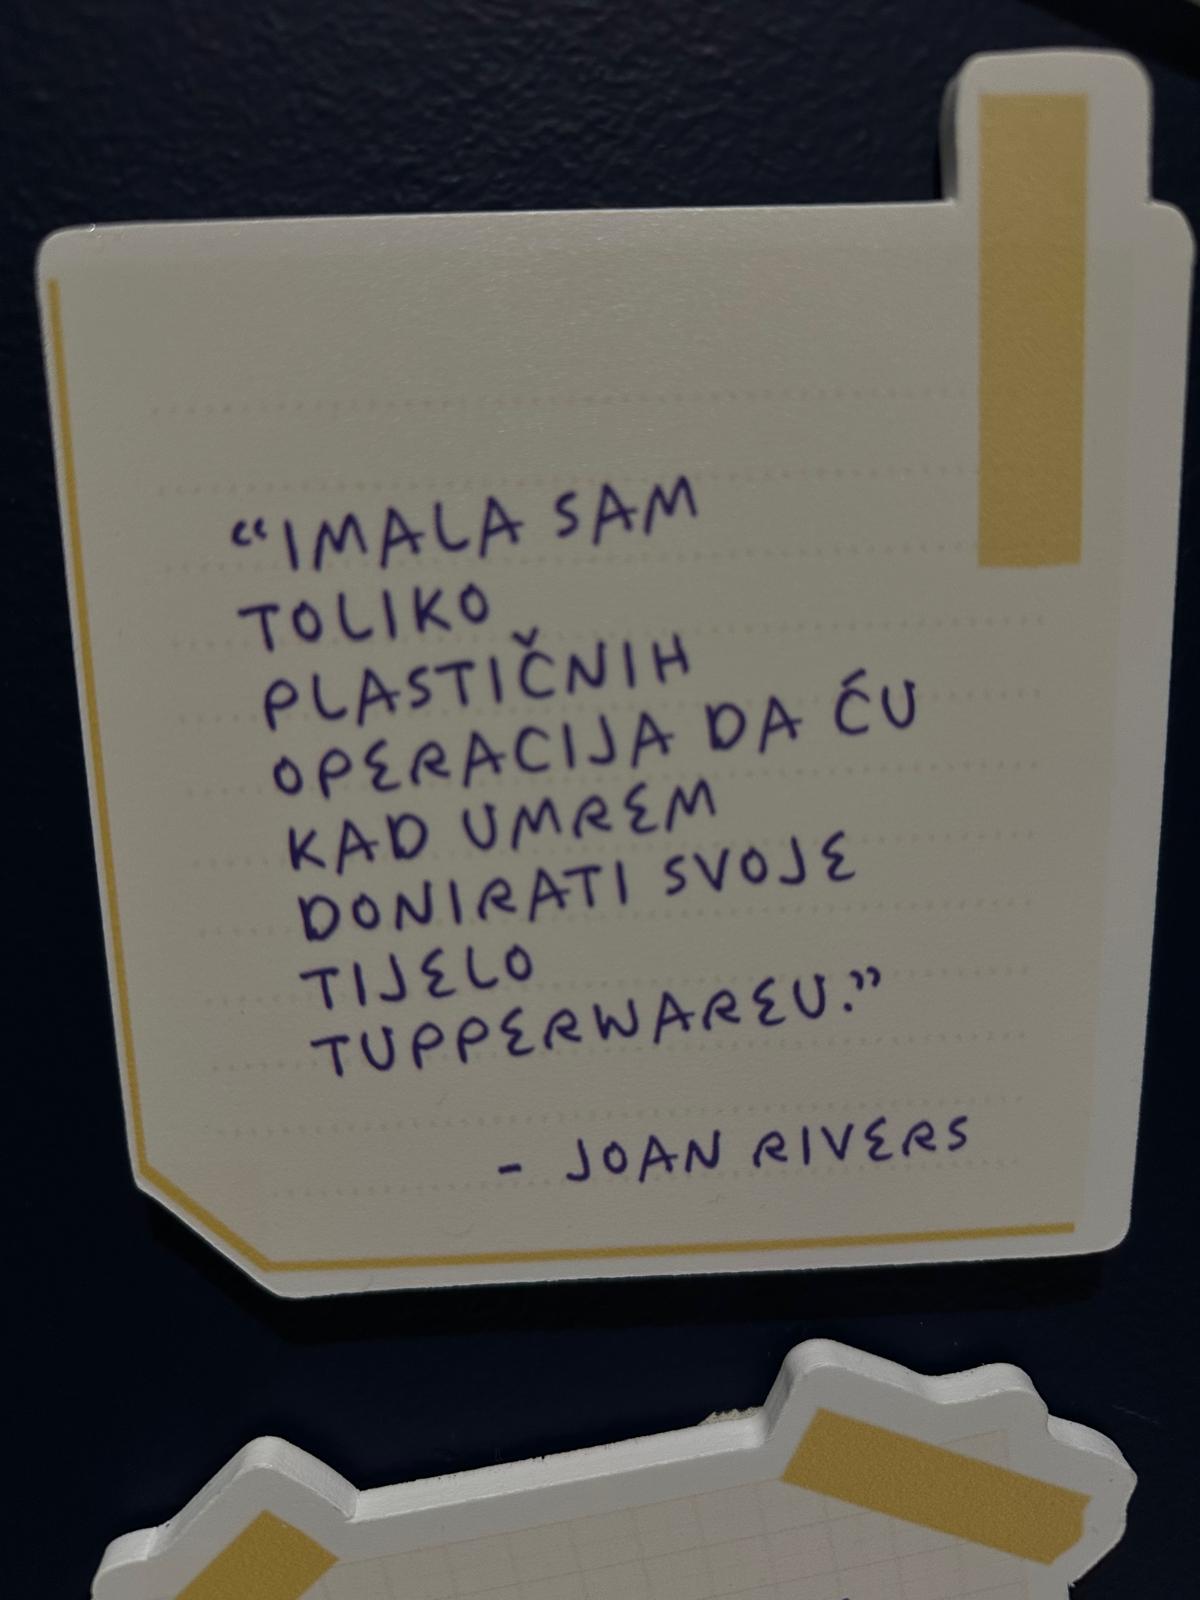 “IMALA SAM
TOLIKO
PLASTIČNIH
OPERACIJA DA ĆU
KAD UMREM
DONIRATI SVOJE
TIJELO
TUPPERWAREU.”
- JOAN RIVERS